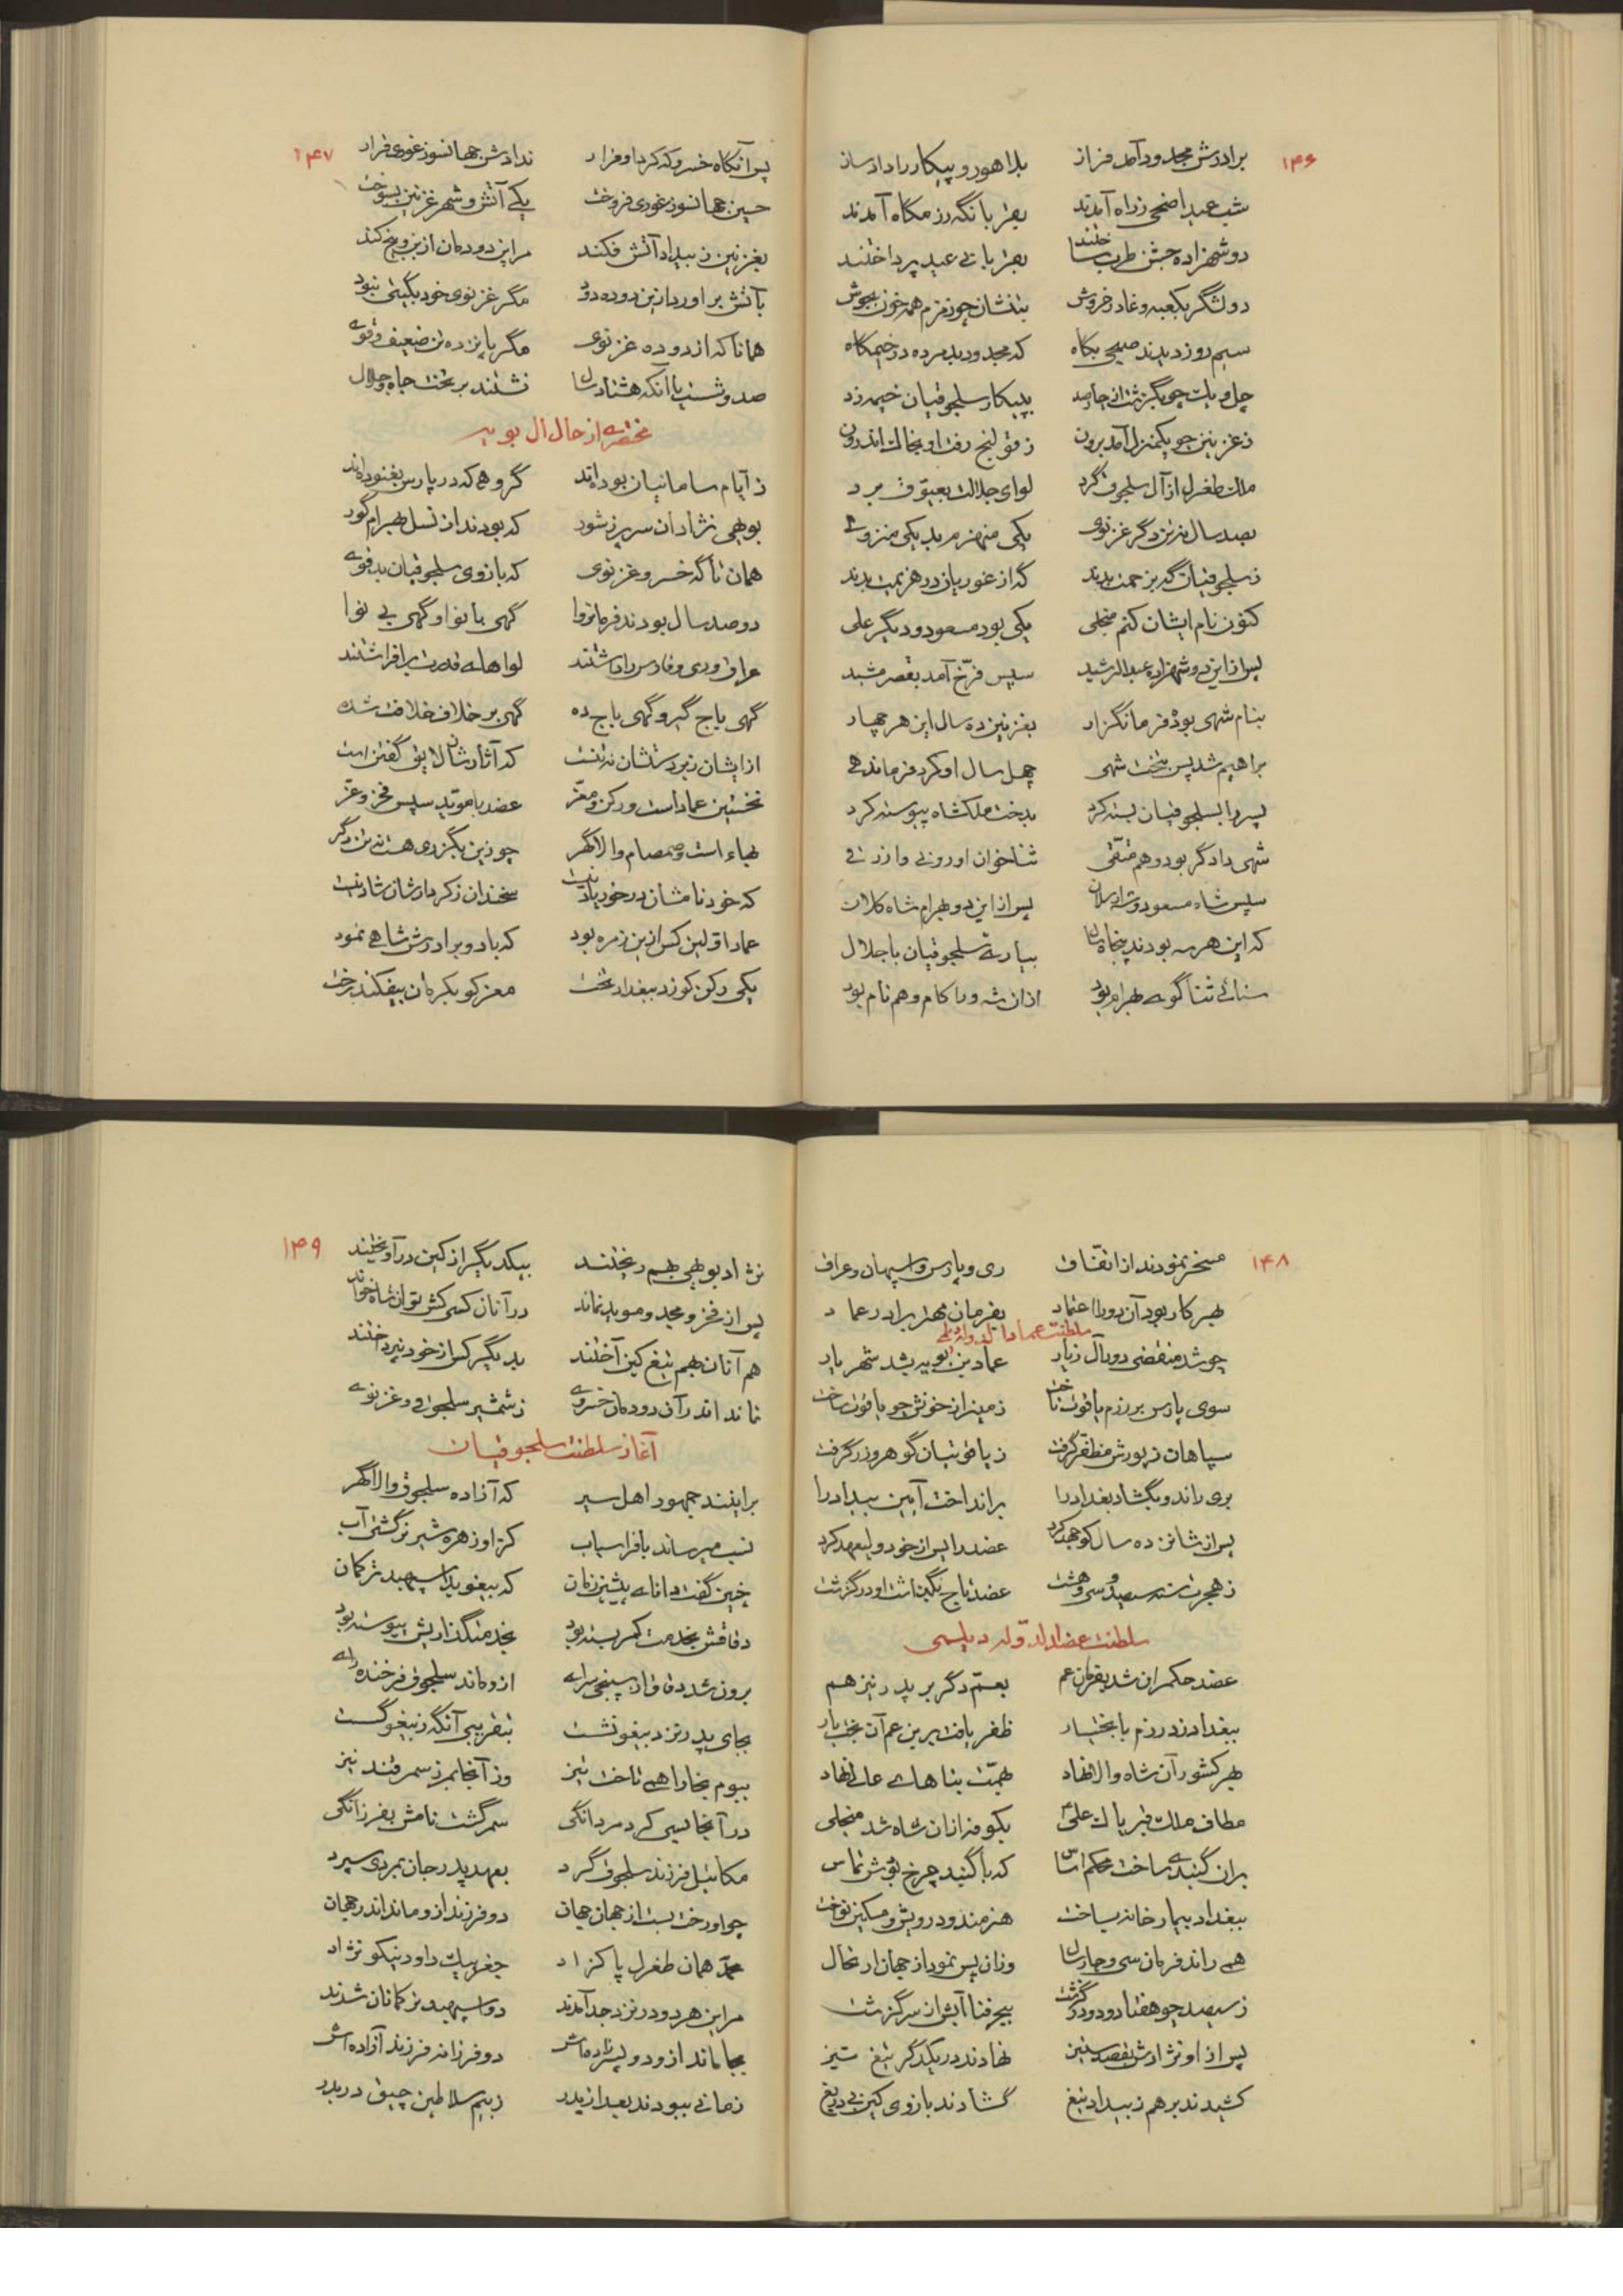 ۱۴۶
برادرش مجدود آمد فراز بلاهور و پیکار را داد ساز
شب عید اضحی ز راه آمدند بقربانگه رزمگاه آمدند
دو شهزاده جشن طرب ساختند بقربانی عید پرداختند
دو لشگر بکعبه وغا در خروش تنشان چو زمزم همه خون بجوش
سیم روز دیدند صبحی بگاه که مجدود بد مرده در خیمگاه
چل و یک چو بگذشت از چارصد به پیکار سلجوقیان خیمه زد
ز غزنین چو یکمنزل آمد برون ز قولنج رفت او بخاک اندرون
ملک طغرل از آل سلجوق گرد لوای جلالت بعیوق برد
بصد سال نه تن دگر غزنوی یکی منهزم بد یکی منزوی
ز سلجوقیان گه بزحمت بدند گه از غوریان در هزیمت بدند
کنون نام ایشان کنم منجلی یکی بود مسعود و دیگر علی
پس از این دو شهزاده عبدالرشید سپس فرخ آمد بقصر مشید
بنام شهی بود فرمانگزار بغزنین ده سال این هر چهار
براهیم شد پس بتخت شهی چهل سال او کرد فرماندهی
پسر را بسلجوقیان بسته کرد بدخت ملکشاه پیوسته کرد
شهی دادگر بود و هم متقی ثناخوان او رونی و ازرقی
سپس شاه مسعود و شه ارسلان پس از این دو بهرام شاه کلان
که این هر سه بودند پنجاه سال بیاری سلجوقیان با جلال
سنائی ثناگوی بهرام بود از آن شه ورا کام و هم نام بود
۱۴۷
پس آنگاه خسرو که کرد او فرار ندادش جهانسوز غوری قرار
حسین جهانسوز غوری فروخت یکی آتش و شهر غزنین بسوخت
بغزنین ز بیداد آتش فکند مر این دودمان از بن و بیخ کند
بآتش برآورد از این دوده دود مگر غزنوی خود بگیتی نبود
همانا که از دوده غزنوی مگر پانزده تن ضعیف و قوی
صد و شست با آنکه هشتاد سال نشتند بر تخت جاه و جلال
مختصری از حال آل بویه
ز ایام سامانیان بوده‌اند گروهی که در پارس بغنوده‌اند
بویهی نژادان سر پر ز شور که بودند از نسل بهرام گور
همان تا گه خسرو غزنوی که بازوی سلجوقیان بد قوی
دو صد سال بودند فرمانروا گهی با نوا و گهی بی نوا
عراق و ری و فارس را داشتند لواهای قدرت برافراشتند
گهی باج گیر و گهی باج ده گهی بر خلاف خلافت شده
از ایشان زبردستشان نه تنست که آثارشان لایق گفتن است
نخستین عماد است و رکن و معز عضد با مؤید سپس فخر و عز
بهاء است و صمصام والا گهر چو زین بگذری هست نه تن دگر
که خود نامشان در خور یاد نیست سخندان ز کردارشان شاد نیست
عماد اولین کس از این زمره بود که با دو برادرش شاهی نمود
یکی رکن کو زد ببغداد تخت معز کو بکرمان بیفکند رخت
۱۴۸
مسخر نمودند از اتفاق ری و پارس و اسپهان و عراق
بهر کار بود آن دو را اعتماد بفرمان مهتر برادر عماد
سلطنت عمادالدوله دیلمی
چو شد منقضی دور آل زیار عماد بن بویه بشد شهریار
سوی پارس بر رزم یاقوت تاخت زمین از خونش چو یاقوت ساخت
سپاهان ز پورش مظفر گرفت ز یاقوتیان گوهر و زر گرفت
بری راند و بگشاد بغداد را برانداخت آیین بیداد را
پس از شانزده سال کو جهد کرد عضد را پس از خود ولیعهد کرد
ز هجرت شده سیصد و سی و هشت عضد تاج بگذاشت او درگذشت
سلطنت عضدالدوله دیلمی
عضد حکمران شد بفرمان عم بعم دگر بر پدر نیز هم
ببغداد زد رزم با بختیار ظفر یافت بر ابن عم آن بخت یار
بهر کشور آن شاه والا نهاد بهمت بناهای عالی نهاد
مطاف ملک قبر پاک علی بکوفه از آن شاه شد منجلی
بر آن گنبدی ساخت محکم اساس که با گنبد چرخ بودش تماس
ببغداد بیمارخانه بساخت هنرمند و درویش و مسکین نواخت
همی راند فرمان سی و چار سال وز آن پس نمود از جهان ارتحال
ز سیصد چو هفتاد و دو درگذشت ببحر فنا آبش از سر گذشت
پس از او نژادش بقصد ستیز نهادند در یکدگر تیغ تیز
کشیدند بر هم ز بیداد تیغ گشادند بازوی کین بی دریغ
۱۴۹
نژاد بویهی بهم ریختند بیکدیگر از کین درآویختند
پس از فخر و مجد و موید نماند در آنان کسی کش توان شاه خواند
هم آنان بهم تیغ کین آختند بدیگر کس از خود نپرداختند
نماند اندر آن دودمان خسروی ز شمشیر سلجوقی و غزنوی
آغاز سلطنت سلجوقیان
براینند جمهور اهل سیر که آزاده سلجوق والا گهر
نسب میرساند بافراسیاب کز او زهره شیر نر گشتی آب
چنین گفت دانای پیشین زمان که بیغو بد اسپهبد ترکمان
دقاقش بخدمت کمر بسته بود بخدمتگذاریش پیوسته بود
برون شد دقاق از سپنجی سرای از او ماند سلجوق فرخنده رای
بجای پدر نزد بیغو نشست بتقریبی آنگه ز بیغو گسست
ببوم بخارا همی تاخت تیز وز آنجا بمرز سمرقند نیز
در آنجا بسی کرد مردانگی سمر گشت نامش بفرزانگی
مکائیل فرزند سلجوق گرد بعهد پدر جان بمردی سپرد
چو او رخت بست از جهان جهان دو فرزند از او ماند اندر جهان
محمد همان طغرل پاکزاد جغربیک داود نیکو نژاد
مر این هر دو در نزد جد آمدند دو اسپهبد ترکمانان شدند
بجا ماند از او دو پسرزاده‌اش دو فرزانه فرزند آزاده‌اش
زمانی ببودند بعد از پدر ز بیم سلاطین چین در بدر